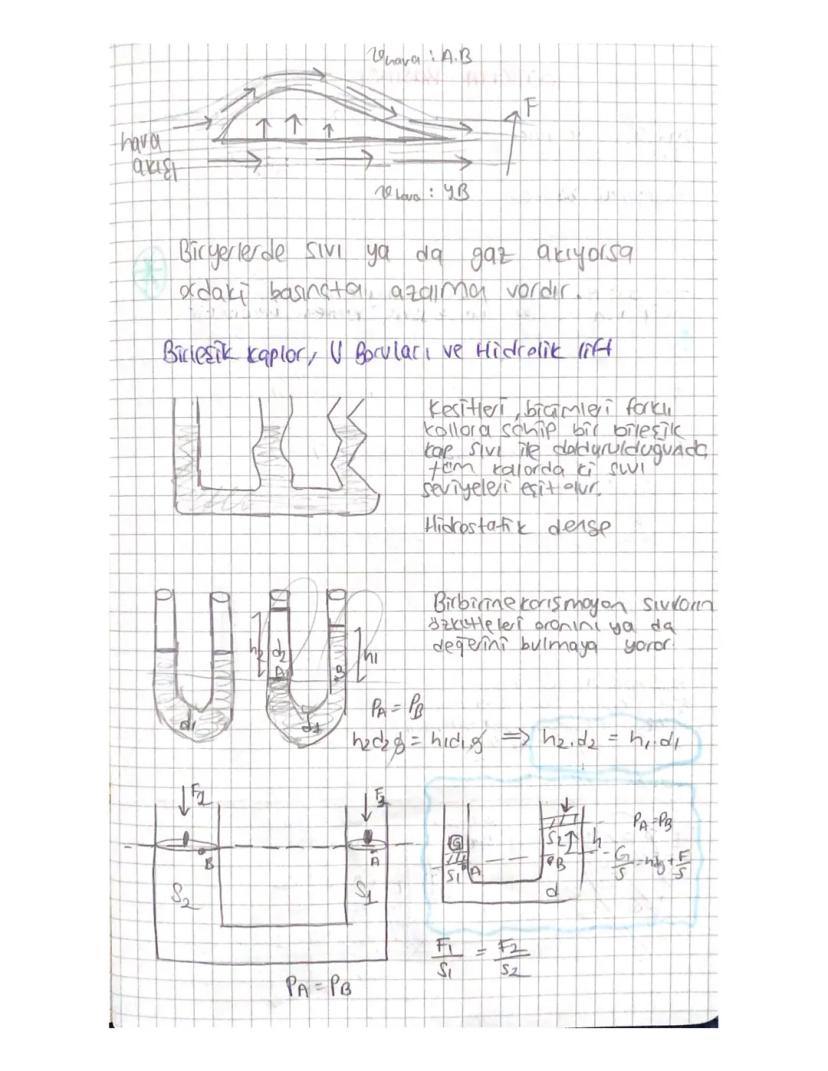 v hava : A.B
F
hava
akışı
v hava : YB
Bir yerlerde sıvı ya da gaz akıyorsa
ordaki basınçta azalma vardır.
Birleşik kaplar, U Boruları ve Hidrolik lift
Kesitleri, biçimleri farklı
kollara sahip bir bileşik
kap sıvı ile doldurulduğunda
tüm kollarda ki sıvı
seviyeleri eşit olur.
Hidrostatik denge
Birbirine karışmayan sıvıların
özkütleleri oranını ya da
değerini bulmaya yarar.
h2 d2 A B h1
d1 d1
PA = PB
h2d2g = h1d1g ⇒ h2.d2 = h1.d1
F2 F1
B A
S2 S1
PA = PB
G S1 A S2 h B d
PA = PB
G/S = hdg + F/S
F1/S1 = F2/S2